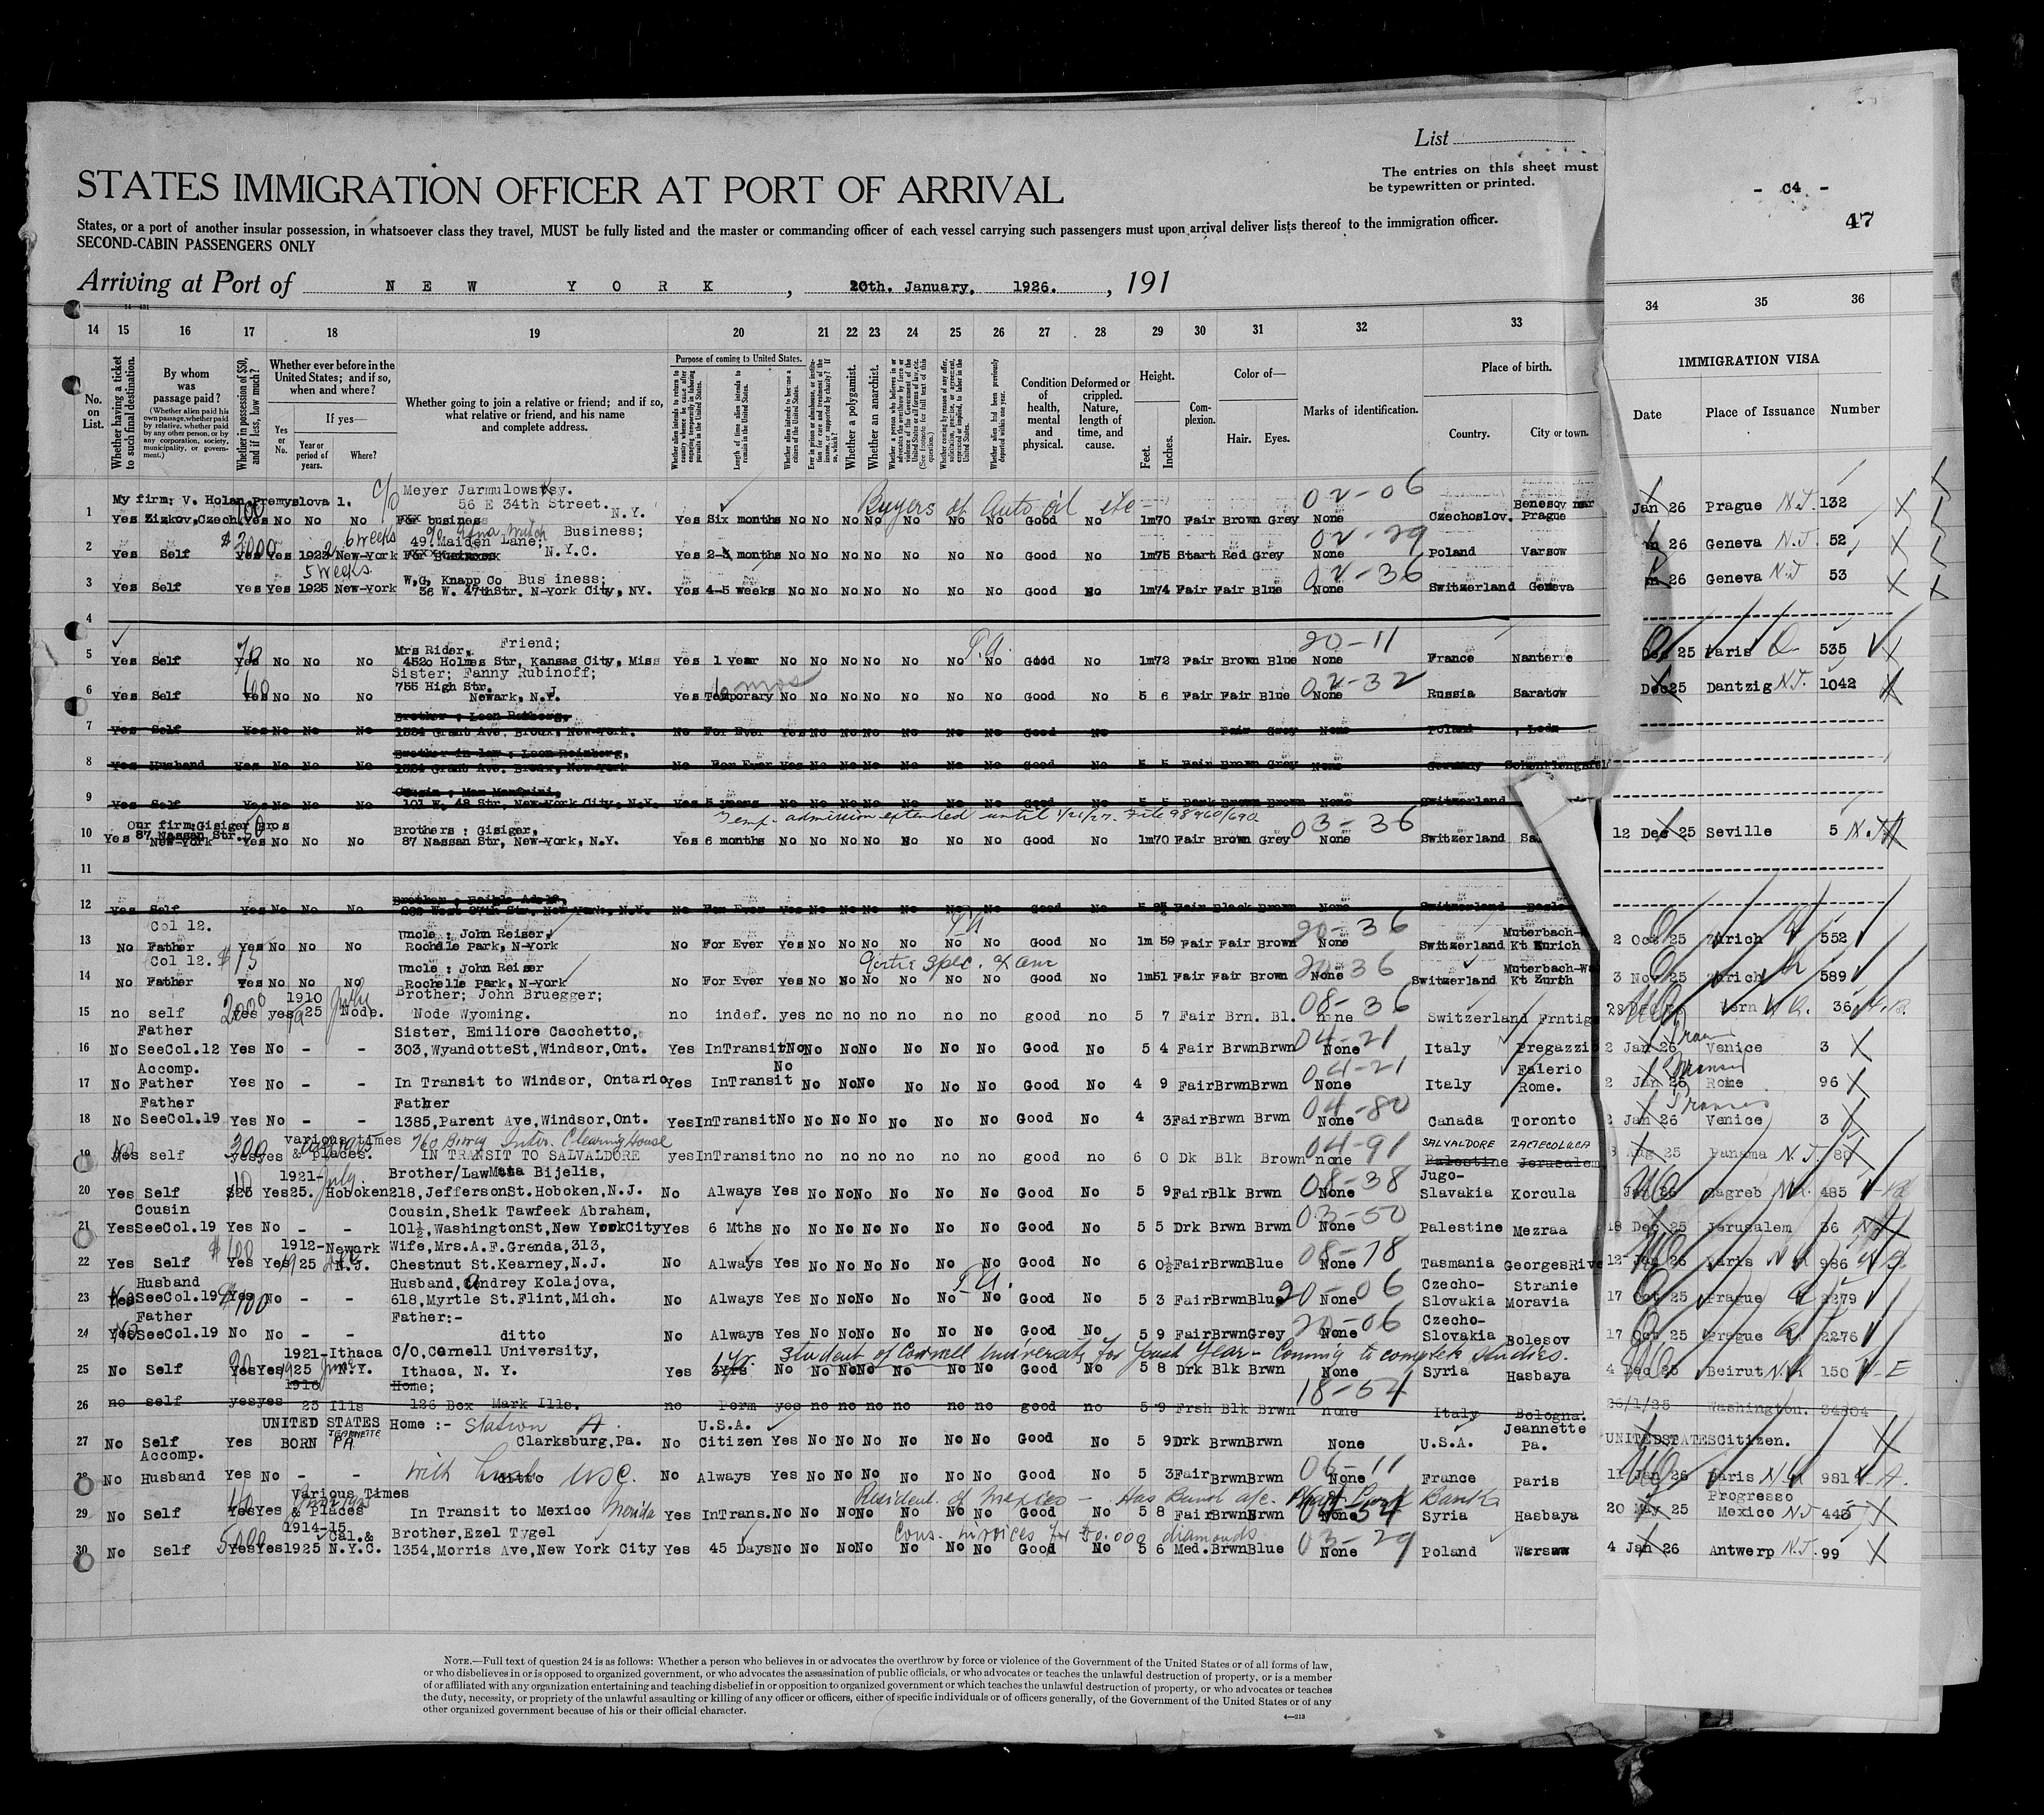 List
The entries on this sheet must
be typewritten or printed.
- C4 -
47
STATES IMMIGRATION OFFICER AT PORT OF ARRIVAL
States, or a port of another insular possession, in whatsoever class they travel, MUST be fully listed and the master or commanding officer of each vessel carrying such passengers must upon arrival deliver lists thereof to the immigration officer.
SECOND-CABIN PASSENGERS ONLY
Arriving at Port of N E W Y O R K , 20th. January, 1926. , 191
14 15 16 17 18 19 20 21 22 23 24 25 26 27 28 29 30 31 32 33 34 35 36
No. on List.
Whether having a ticket to such final destination.
By whom was passage paid?
(Whether alien paid his own passage, whether paid by relative, whether paid by any other person, or by any corporation, society, municipality, or government.)
Whether in possession of $50, and if less, how much?
Whether ever before in the United States; and if so, when and where?
Yes or No.
If yes—
Year or period of years.
Where?
Whether going to join a relative or friend; and if so, what relative or friend, and his name and complete address.
Purpose of coming to United States.
Length of time alien intends to remain in the United States.
Whether a polygamist.
Whether an anarchist.
Condition of health, mental and physical.
Deformed or crippled. Nature, length of time, and cause.
Height.
Feet. Inches.
Complexion.
Color of—
Hair. Eyes.
Marks of identification.
Place of birth.
Country. City or town.
IMMIGRATION VISA
Date Place of Issuance Number
My firm: V. Holan Premyslova 1. c/o Meyer Jarmulowsky. 02-06
56 E 34th Street. N.Y. Buyers of Auto oil etc Benesov near
1 Yes Zizkov, Czech. Yes No No No For business Yes Six months No No No No No No No Good No 1m70 Fair Brown Grey None Czechoslov. Prague Jan 26 Prague N.J. 132
$3000 6 weeks Business; 02-29
2 Yes Self Yes Yes New-York 49. Maiden Lane; N.Y.C. Yes months No No No No No No No Good No 1m75 Red Grey None Poland Varsow 26 Geneva N.J. 52
5 weeks W.G. Knapp Co Business; 02-36
3 Yes Self Yes Yes 1925 New-York 36 W. 47thStr. N-York City, NY. Yes 4-5 weeks No No No No No No No Good No 1m74 Fair Fair Blue None Switzerland Geneva 26 Geneva N.J 53
4
70 Mrs Rider, Friend; 20-11
5 Yes Self Yes No No No 4520 Holmes Str, Kansas City, Miss Yes 1 year No No No No No No No Good No 1m72 Fair Brown Blue None France Nanterre Dec 25 Paris 535
Sister; Fanny Rubinoff;
755 High Str. 6 mos 02-32
6 Yes Self Yes No No No Newark, N.J. Yes Temporary No No No No No No No Good No 5 6 Fair Fair Blue None Russia Saratow Dec25 Dantzig N.J. 1042
7 Yes Self Yes No No No 1834 Grant Ave. Bronx, New-York. No For Ever Yes No No No No No No Good No Fair Grey None Poland , Lodz
8 Yes Husband Yes No No No 1834 Grant Ave. Bronx, New-York No For Ever Yes No No No No No No Good No 5 5 Fair Brown Grey None Germany
9 Yes Self Yes No No No 101 W. 48 Str. New-York City. N.Y. Yes 5 years No No No No No No No Good No 5 5 Dark Brown Brown None Switzerland
Our firm: Gisiger Bros Temp. admission extended until 1/21/27. File 98960/690
87 Nassau Str. Brothers: Gisiger, 03-36
10 Yes New-York Yes No No No 87 Nassau Str, New-York, N.Y. Yes 6 months No No No No No No No Good No 1m70 Fair Brown Grey None Switzerland 12 Dec 25 Seville 5 N.J.
11
12 Yes Self Yes No No No No For Ever Yes No No No No No No Good No 5 Fair Black Brown None Switzerland
Col 12. Uncle : John Reiser, 20-36
13 No Father Yes No No No Rochelle Park, N-York No For Ever Yes No No No No No No Good No 1m 59 Fair Fair Brown None Switzerland Kt Zurich 2 Oct 25 Zurich 552
Col 12. $15 Uncle : John Reiser 20-36
14 No Father Yes No No No Rochelle Park, N-York No For Ever Yes No No No No No No Good No 1m51 Fair Fair Brown None Switzerland Kt Zurich 3 Nov 25 Zurich 589
2000 1910 July Brother; John Bruegger; 08-36
15 no self yes yes 25 Node. Node Wyoming. no indef. yes no no no no no no good no 5 7 Fair Brn. Bl. none Switzerland 28 Dec 25 Bern 36
Father Sister, Emiliore Cacchetto, 04-21
16 No SeeCol.12 Yes No - - 303, WyandotteSt, Windsor, Ont. Yes InTransit No No No No No No No Good No 5 4 Fair Brwn Brwn None Italy Pregazzi 2 Jan 26 Venice 3
Accomp. 04-21 Faierio
17 No Father Yes No - - In Transit to Windsor, Ontario Yes InTransit No No No No No No No Good No 4 9 Fair Brwn Brwn None Italy Rome. 2 Jan 26 Rome 96
Father Father 04-80
18 No SeeCol.19 Yes No - - 1385, Parent Ave, Windsor, Ont. Yes InTransit No No No No No No No Good No 4 3 Fair Brwn Brwn None Canada Toronto 2 Jan 26 Venice 3
300 various times Clearing House 04-91 SALVALDORE ZACTECOLUCA
19 self yes yes & places. IN TRANSIT TO SALVALDORE yes InTransit no no no no no no no good no 6 0 Dk Blk Brown none Palestine Jerusalem Aug 25 Panama N.J. 80
1921- July. Brother/Law Mata Bijelis, 08-38 Jugo-
20 Yes Self $25 Yes 25. Hoboken 218, JeffersonSt. Hoboken, N.J. No Always Yes No No No No No No Good No 5 9 Fair Blk Brwn None Slavakia Korcula Jan 26 Zagreb 485
Cousin Cousin, Sheik Tawfeek Abraham, 03-50
21 Yes SeeCol.19 Yes No - - 101½, WashingtonSt, New YorkCity Yes 6 Mths No No No No No No No Good No 5 5 Drk Brwn Brwn None Palestine Mezraa 18 Dec 25 Jerusalem 36
$100 1912- Newark Wife, Mrs.A.F.Grenda, 313, 08-78
22 Yes Self Yes Yes 25 N.J. Chestnut St. Kearney, N.J. No Always Yes No No No No No No Good No 6 0½ Fair Brwn Blue None Tasmania GeorgesRive 12 Jan 26 Paris 986
Husband Husband, Andrey Kolajova, 20-06 Czecho- Stranie
23 SeeCol.19 Yes No - $100 618, Myrtle St. Flint, Mich. No Always Yes No No No No No No Good No 5 3 Fair Brwn Blue None Slovakia Moravia 17 Oct 25 Prague 2279
Father Father:- 20-06 Czecho-
24 SeeCol.19 No No - - ditto No Always Yes No No No No No No Good No 5 9 Fair Brwn Grey None Slovakia Bolesov 17 Oct 25 Prague 2276
1921- Ithaca C/O, Cornell University, 1 yr. Student of Cornell University for past Year - Coming to complete studies.
25 No Self Yes Yes 25 N.Y. Ithaca, N. Y. Yes 3Yrs No No No No No No No Good No 5 8 Drk Blk Brwn None Syria Hasbaya 4 Dec 25 Beirut 150
1916 Home; 18-54
26 no self yes yes 25 Ills 126 Box Mark Ills. no Perm yes no no no no no no good no 5 9 Frsh Blk Brwn none Italy Bologna. 26/1/25 Washington. 34304
UNITED STATES Home :- Station A. U.S.A. Jeannette
27 No Self Yes BORN JEANNETTE PA. Clarksburg, Pa. No Citizen Yes No No No No No No Good No 5 9 Drk Brwn Brwn None U.S.A. Pa. UNITED STATES Citizen.
Accomp. with husb USC. 06-11
28 No Husband Yes No - - ditto No Always Yes No No No No No No Good No 5 3 Fair Brwn Brwn None France Paris 11 Jan 26 Paris 981
Various Times Resident of Mexico - Has Bank a/c. Bank Progresso
29 No Self Yes Yes & Places In Transit to Mexico Merida Yes InTrans. No No No No No No No Good No 5 8 Fair Brwn Brwn None Syria Hasbaya 20 May 25 Mexico N.J 445
5000 1914-15 Cal.& Brother, Ezel Tygel Cons. invoices for $0.000 diamonds 03-29
30 No Self Yes Yes 1925 N.Y.C. 1354, Morris Ave, New York City Yes 45 Days No No No No No No No Good No 5 6 Med. Brwn Blue None Poland Warsaw 4 Jan 26 Antwerp N.J. 99
NOTE.—Full text of question 24 is as follows: Whether a person who believes in or advocates the overthrow by force or violence of the Government of the United States or of all forms of law,
or who disbelieves in or is opposed to organized government, or who advocates the assassination of public officials, or who advocates or teaches the unlawful destruction of property, or is a member
of or affiliated with any organization entertaining and teaching disbelief in or opposition to organized government or which teaches the unlawful destruction of property, or who advocates or teaches
the duty, necessity, or propriety of the unlawful assaulting or killing of any officer or officers, either of specific individuals or of officers generally, of the Government of the United States or of any
other organized government because of his or their official character.
4—213